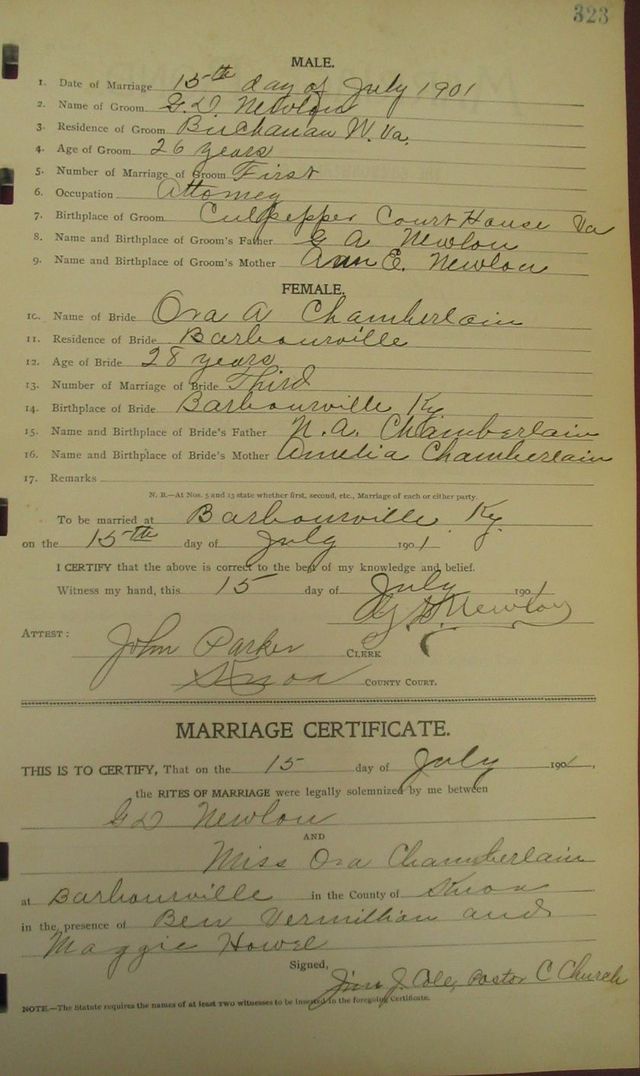 323
MALE.
1. Date of Marriage 15th day of July 1901
2. Name of Groom G.D. Newlon
3. Residence of Groom Buchanan W. Va.
4. Age of Groom 26 years
5. Number of Marriage of Groom First
6. Occupation Attorney
7. Birthplace of Groom Culpepper Court House Va
8. Name and Birthplace of Groom's Father G A Newlon
9. Name and Birthplace of Groom's Mother Ann E. Newlon
FEMALE.
10. Name of Bride Ora A Chamberlain
11. Residence of Bride Barbourville
12. Age of Bride 28 years
13. Number of Marriage of Bride Third
14. Birthplace of Bride Barbourville Ky
15. Name and Birthplace of Bride's Father N. A. Chamberlain
16. Name and Birthplace of Bride's Mother Amelia Chamberlain
17. Remarks
N. B.—At Nos. 5 and 13 state whether first, second, etc., Marriage of each or either party.
To be married at Barbourville Ky.
on the 15th day of July 1901
I CERTIFY that the above is correct to the best of my knowledge and belief.
Witness my hand, this 15 day of July 1901
G. D. Newlon
ATTEST: John Parker CLERK
Knox COUNTY COURT.
MARRIAGE CERTIFICATE.
THIS IS TO CERTIFY, That on the 15 day of July 1901,
the RITES OF MARRIAGE were legally solemnized by me between
G D Newlon
AND
Miss Ora Chamberlain
at Barbourville in the County of Knox
in the presence of Ben Vermillion and
Maggie Howel
Signed, J. Cole, Pastor C Church
NOTE.—The Statute requires the names of at least TWO witnesses to be inserted in the foregoing Certificate.